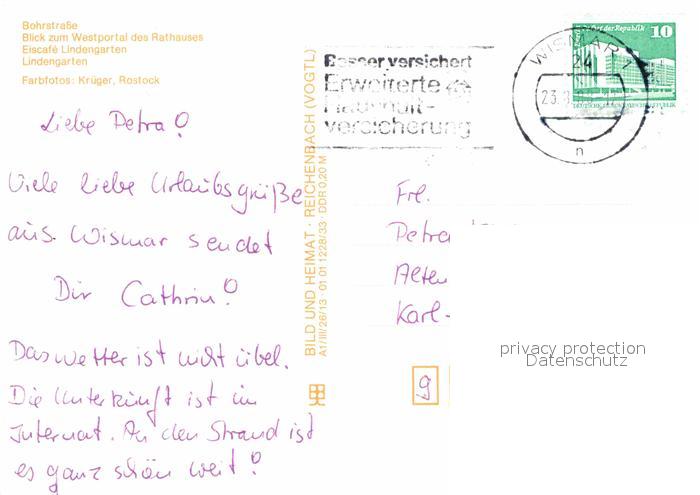 Bohrstraße
Blick zum Westportal des Rathauses
Eiscafé Lindengarten
Lindengarten
Farbfotos: Krüger, Rostock
Liebe Petra!
Viele liebe Urlaubsgrüße
aus Wismar sendet
Dir Cathrin!
Das Wetter ist nicht übel.
Die Unterkunft ist im
Internat. An den Strand ist
es ganz schön weit!
BILD UND HEIMAT · REICHENBACH (VOGTL)
A1/III/26/13 · 01 01 1228/33 · DDR 0,20 M
Besser versichert
Erweiterte
Haushalt-
versicherung
WISMAR 1
24
23.
n
der Republik 10
Frl.
Petra
Alten
Karl-
9
privacy protection
Datenschutz